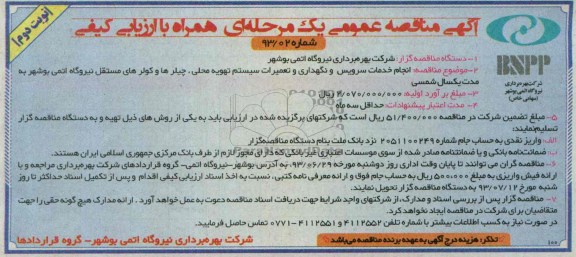 نوبت دوم
آگهی مناقصه عمومی یک مرحله‌ای همراه با ارزیابی کیفی
شماره 93/02
BNPP
شرکت بهره‌برداری
نیروگاه اتمی بوشهر
(سهامی خاص)
1- دستگاه مناقصه گزار: شرکت بهره‌برداری نیروگاه اتمی بوشهر
2- موضوع مناقصه: انجام خدمات سرویس و نگهداری و تعمیرات سیستم تهویه محلی، چیلر ها و کولر های مستقل نیروگاه اتمی بوشهر به
مدت یکسال شمسی
3- مبلغ بر آورد اولیه: 2/070/000/000 ریال
4- مدت اعتبار پیشنهادات: حداقل سه ماه
5- مبلغ تضمین شرکت در مناقصه 51/400/000 ریال است که شرکتهای برگزیده شده در ارزیابی باید به یکی از روش های ذیل تهیه و به دستگاه مناقصه گزار
تسلیم نمایند:
الف- واریز نقدی به حساب جام شماره 2051100249 نزد بانک ملت بنام دستگاه مناقصه‌گزار
ب- ضمانت‌نامه بانکی و یا ضمانتنامه صادر شده از سوی موسسات اعتباری غیر بانکی که دارای مجوز لازم از طرف بانک مرکزی جمهوری اسلامی ایران هستند.
6- مناقصه گران می توانند تا پایان وقت اداری روز دوشنبه مورخه 93/06/29 به آدرس بوشهر-نیروگاه اتمی- گروه قراردادهای شرکت بهره‌برداری مراجعه و با
ارائه فیش واریزی به مبلغ 500/000 ریال به حساب جام فوق و ارائه معرفی نامه کتبی، نسبت به اخذ اسناد ارزیابی کیفی اقدام و پس از تکمیل اسناد حداکثر تا روز
شنبه مورخ 93/07/12 به دستگاه مناقصه گزار تحویل نمایند.
7- مناقصه گزار پس از بررسی اسناد و مدارک، از شرکتهای واجد شرایط جهت دریافت اسناد مناقصه دعوت به عمل خواهد آورد. ارائه مدارک هیچ گونه حقی را جهت
متقاضیان برای شرکت در مناقصه ایجاد نخواهد کرد.
در صورت نیاز به کسب اطلاعات بیشتر با شماره تلفن 4112552 و 4112551-0771 تماس حاصل فرمایید.
تذکر: هزینه درج آگهی به عهده برنده مناقصه می‌باشد
شرکت بهره‌برداری نیروگاه اتمی بوشهر- گروه قراردادها